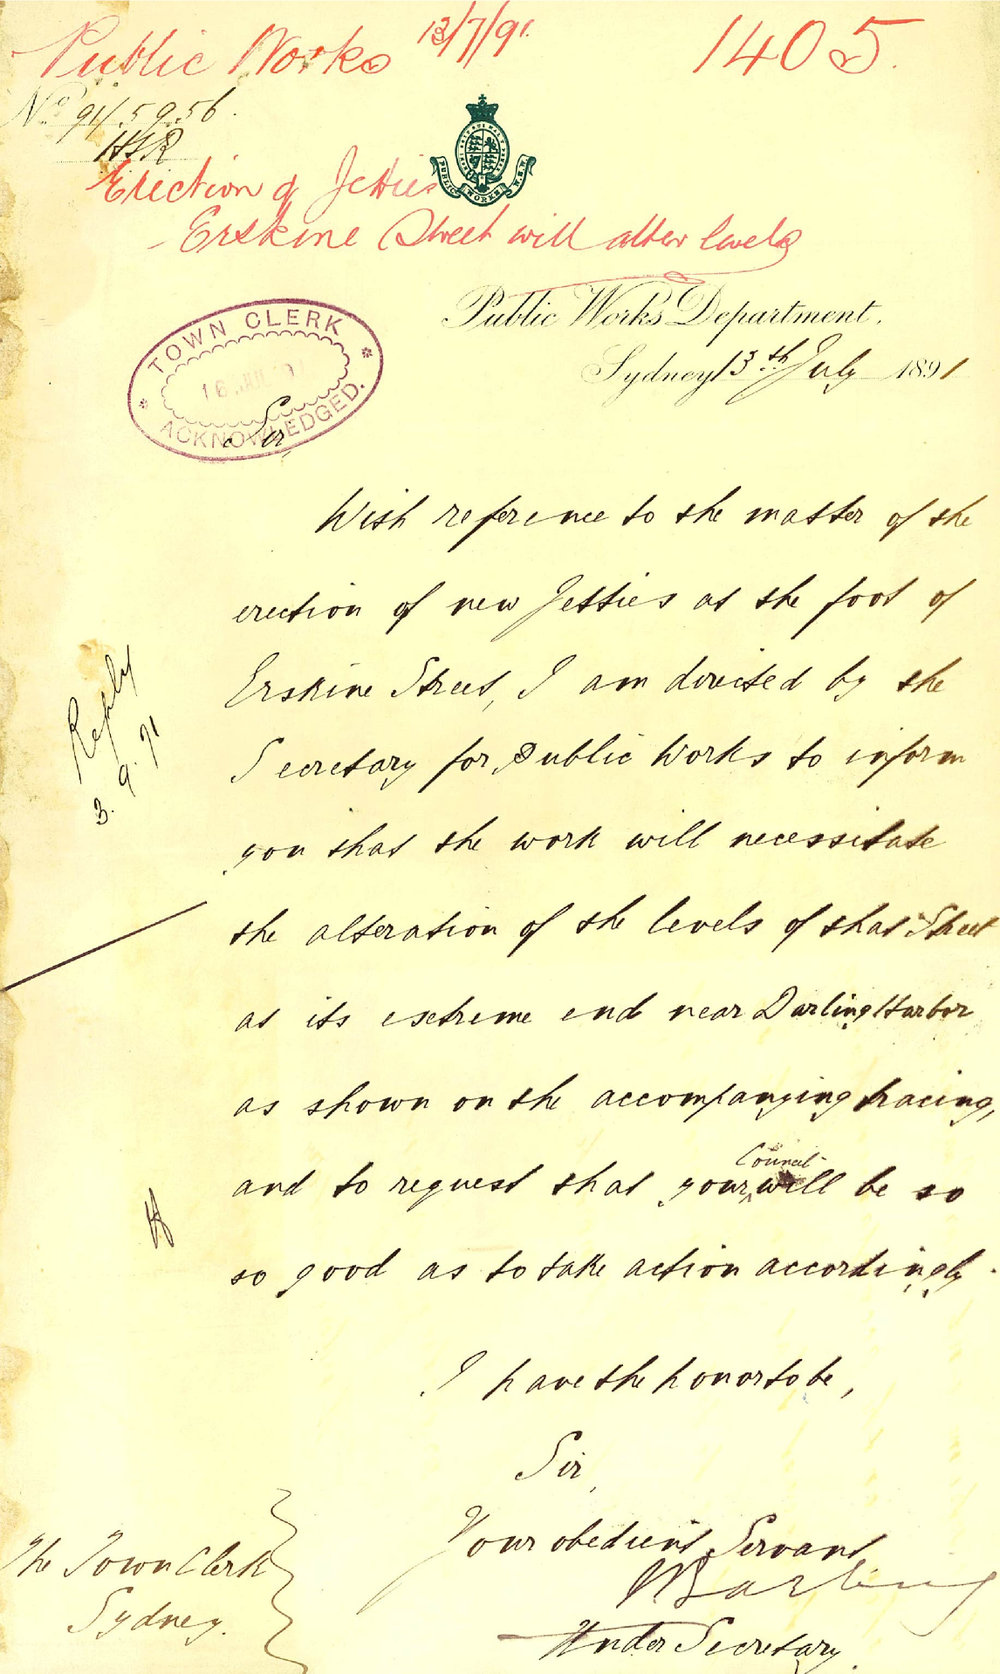 Public Works 13/7/91 1405.
No 91/5956.
Erection of Jetties
Erskine Street will alter levels
PUBLIC WORKS N.S.W.
Public Works Department.
Sydney 13th July 1891
TOWN CLERK
16 JUL 91
ACKNOWLEDGED.
Sir,
With reference to the matter of the
erection of new Jetties at the foot of
Erskine Street, I am directed by the
Secretary for Public Works to inform
you that the work will necessitate
the alteration of the levels of that Street
at its extreme end near Darling Harbor
as shown on the accompanying tracing,
Council
and to request that your will be so
so good as to take action accordingly.
Reply
3.9.91
I have the honor to be,
Sir,
Your obedient Servant
Under Secretary.
The Town Clerk
Sydney.